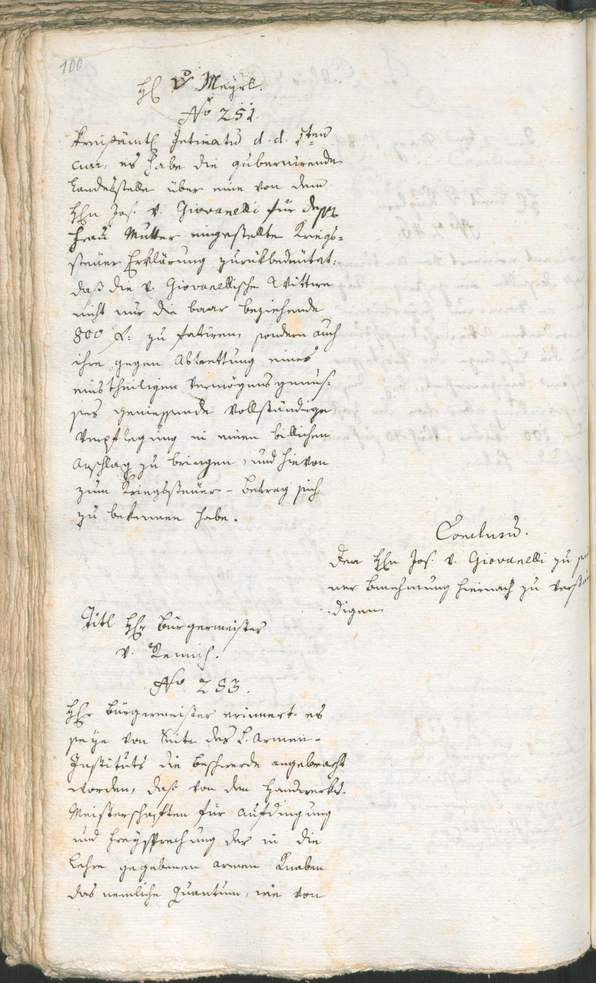 100
H. v. Meyrl.
No 251.
Kreisämtl Intimatum d. d. 5ten
curr. es habe die gubernirende
Landesstelle über eine von dem
Hhn Jos. v. Giovanelli für dessen
Frau Mutter eingestellte Kriegs-
steuer Erklärung zurückbedeutet:
daß die v. Giovanellische Wittwe
nicht nur die baar beziehende
800 f: zu fatiren, sondern auch
ihre gegen Abtrettung eines
eins theiligen Vermögens genus-
ses geniessende vollständige
Verpflegung in einen billichen
Anschlag zu bringen, und hievon
zum Kriegssteuer-betrag sich
zu bekennen habe.
Conclusum.
Dem Hhn Jos. v. Giovanelli zu sei
ner Benehmung hiernach zu verstän
digen
Titl Hhr Bürgermeister
v. Remich.
No 253.
Hhr Bürgermeister erinnert es
seye von Seite des L. Armen-
Instituts die Beschwerde angebracht
worden, daß von den Handwerks-
Meisterschaften für Aufdingung
und Freysprechung der in die
Lehre gegebenen armen Knaben
das nemliche Quantum, wie von